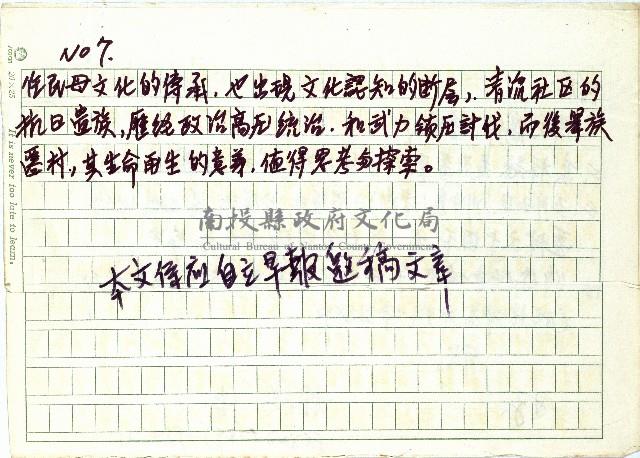 No 7.
住民母文化的傳承，也出現文化認知的断层，清流社区的
抗日遺族，歷經政治高压統治．和武力鎮压討伐，而後舉族
遷村，其生命再生的意義，值得思考与探索。
南投縣政府文化局
Cultural Bureau of Nantou County Government
本文係應自立早報邀稿文章
100m 20×25 It is never too late to learn.